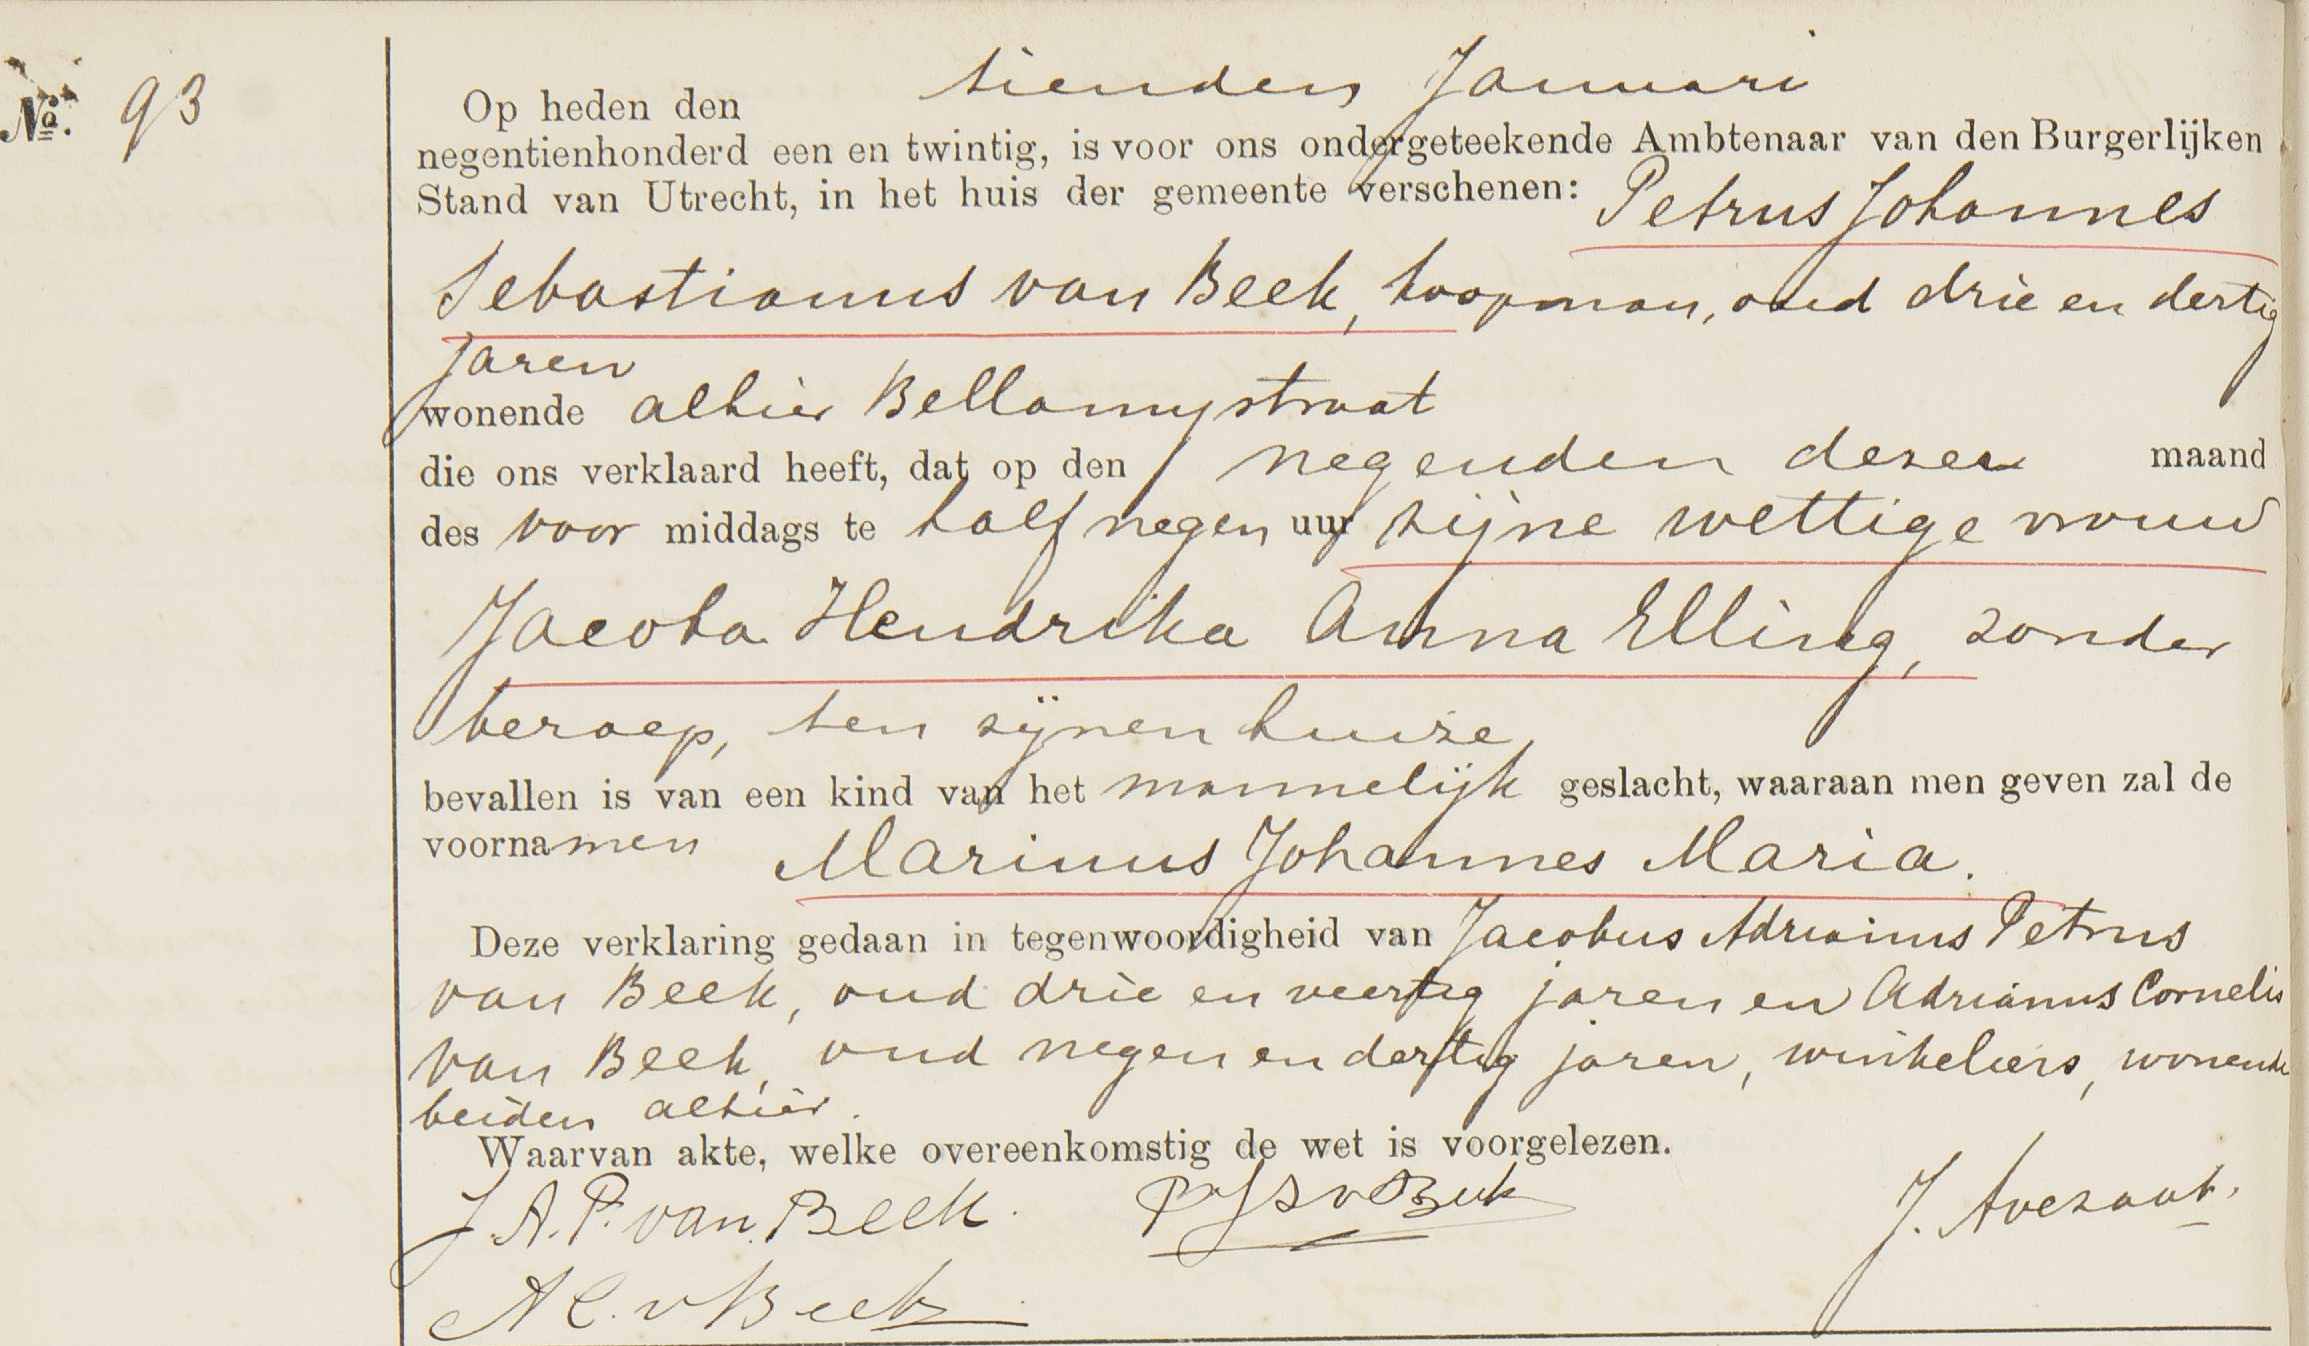 No. 93
Op heden den tienden Januari
negentienhonderd een en twintig, is voor ons ondergeteekende Ambtenaar van den Burgerlijken
Stand van Utrecht, in het huis der gemeente verschenen: Petrus Johannes
Sebastianus van Beek, koopman, oud drie en dertig
jaren
wonende alhier Bellamystraat
die ons verklaard heeft, dat op den negenden dezer maand
des voor middags te half negen uur zijne wettige vrouw
Jacoba Hendrika Anna Elling, zonder
beroep, ten zijnen huize,
bevallen is van een kind van het mannelijk geslacht, waaraan men geven zal de
voornamen Marinus Johannes Maria.
Deze verklaring gedaan in tegenwoordigheid van Jacobus Adrianus Petrus
van Beek, oud drie en veertig jaren en Adrianus Cornelis
van Beek, oud negen en dertig jaren, winkeliers, wonende
beiden alhier.
Waarvan akte, welke overeenkomstig de wet is voorgelezen.
J. A. P. van Beek. PJSvBeek J. Avezaat.
A C. v Beek